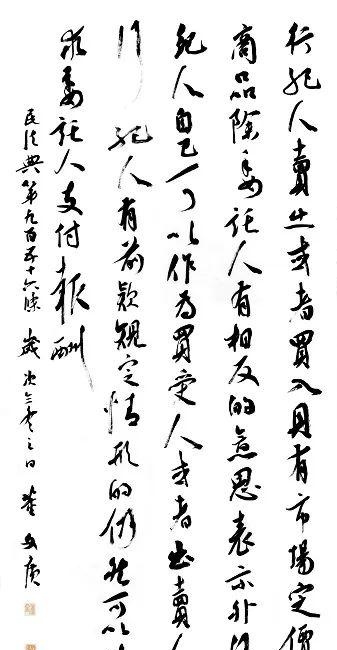 行紀人賣出或者買入具有市場定價
商品除委託人有相反的意思表示外行
紀人自己可以作為買受人或者出賣人
行紀人有前款規定情形的仍然可以
求委託人支付報酬
民法典第九百五十六條 歲次